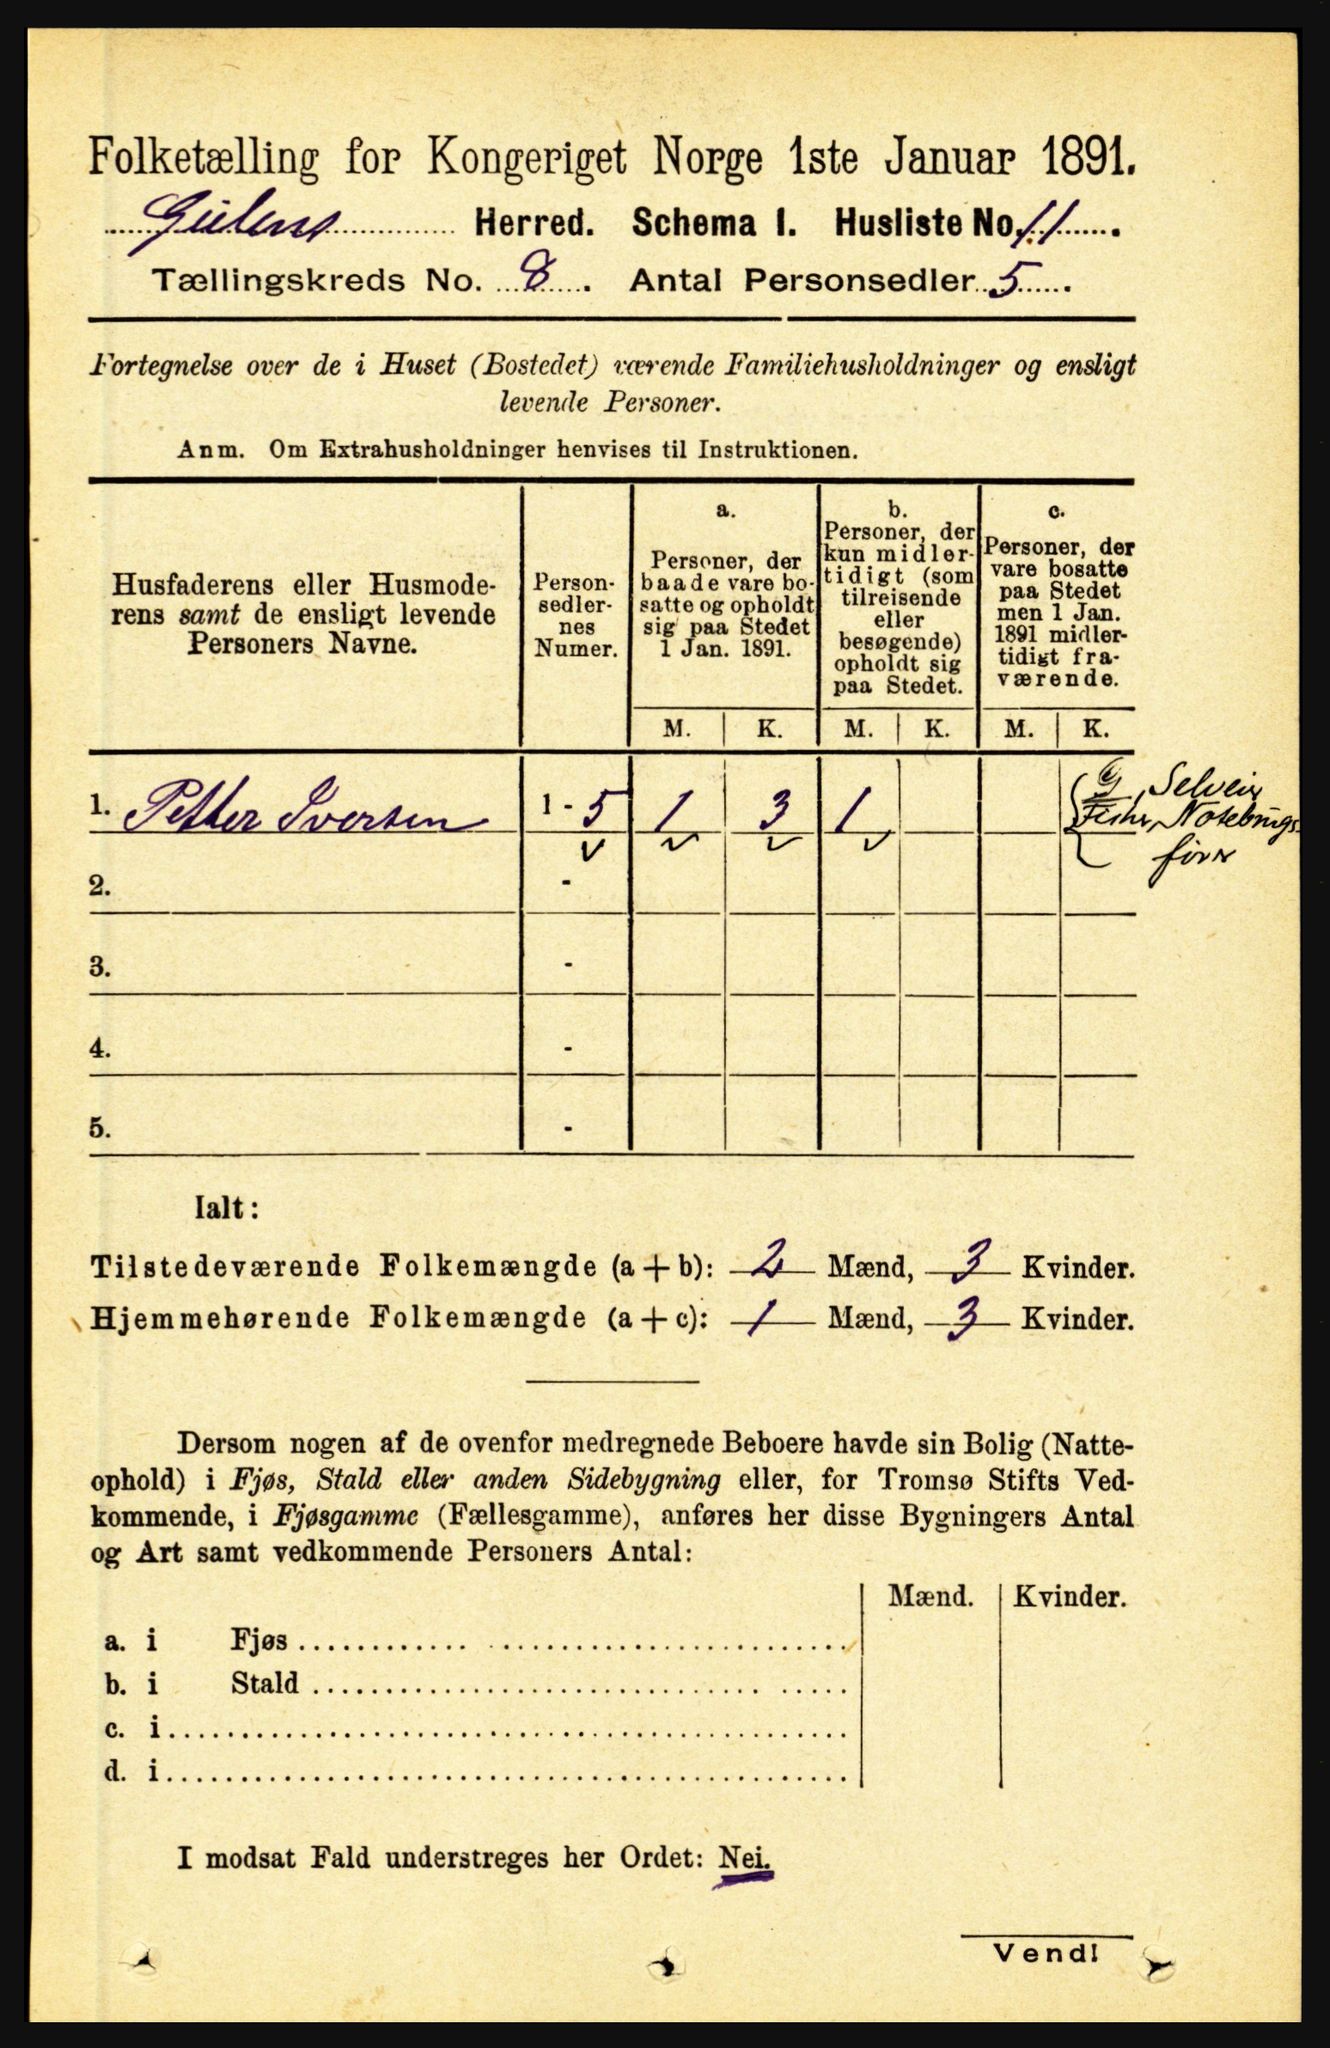 Folketælling for Kongeriget Norge 1ste Januar 1891.
Gulens Herred. Schema I. Husliste No. 11.
Tællingskreds No. 8. Antal Personsedler 5.
Fortegnelse over de i Huset (Bostedet) værende Familiehusholdninger og ensligt
levende Personer.
Anm. Om Extrahusholdninger henvises til Instruktionen.
Husfaderens eller Husmode-
rens samt de ensligt levende
Personers Navne.
Person-
sedler-
nes
Numer.
a.
Personer, der
baade vare bo-
satte og opholdt
sig paa Stedet
1 Jan. 1891.
b.
Personer, der
kun midler-
tidigt (som
tilreisende
eller
besøgende)
opholdt sig
paa Stedet.
c.
Personer, der
vare bosatte
paa Stedet
men 1 Jan.
1891 midler-
tidigt fra-
værende.
M. K. M. K. M. K.
1. Petter Iversen 1 - 5 1 3 1
G. Selveier
Fisker, Notebrugs
fører
2. -
3. -
4. -
5. -
Ialt:
Tilstedeværende Folkemængde (a + b): 2 Mænd, 3 Kvinder.
Hjemmehørende Folkemængde (a + c): 1 Mænd, 3 Kvinder.
Dersom nogen af de ovenfor medregnede Beboere havde sin Bolig (Natte-
ophold) i Fjøs, Stald eller anden Sidebygning eller, for Tromsø Stifts Ved-
kommende, i Fjøsgamme (Fællesgamme), anføres her disse Bygningers Antal
og Art samt vedkommende Personers Antal:
Mænd. Kvinder.
a. i Fjøs
b. i Stald
c. i
d. i
I modsat Fald understreges her Ordet: Nei.
Vend!